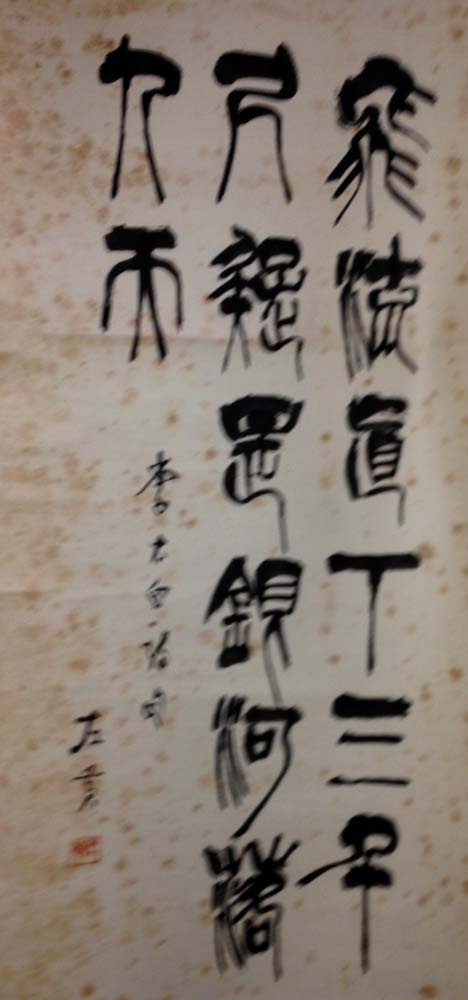 飛流直下三千
尺疑是銀河落
九天
李太白詩句
左書